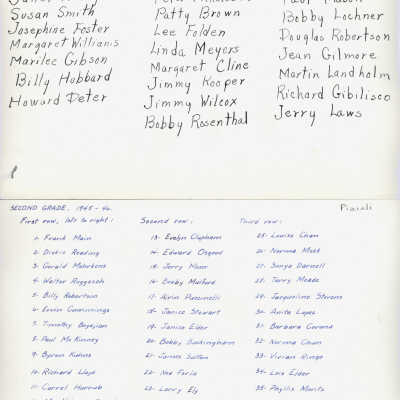 Susan Smith
Josephine Foster
Margaret Williams
Marilee Gibson
Billy Hubbard
Howard Deter
Patty Brown
Lee Folden
Linda Meyers
Margaret Cline
Jimmy Kooper
Jimmy Wilcox
Bobby Rosenthal
Bobby Lochner
Douglas Robertson
Jean Gilmore
Martin Landholm
Richard Gibilisco
Jerry Laws
SECOND GRADE, 1945-46
First row, left to right:
1- Frank Main
2- Dickie Reading
3- Gerald Mehrkens
4- Walter Roggasch
5- Billy Robertson
6- Ervin Cummings
7- Timothy
8- Paul McKinney
9- Byron Kuhns
10- Richard Lloyd
11- Carrol
Second row:
13- Evelyn Clapham
14- Edward Osgood
15- Jerry
16- Emby
17- Alvin
18- Janice Stewart
19- Janice Elder
20- Bobby Buckingham
21- James Sutton
22- Noe Faria
23- Larry Ely
Third row:
25- Louise Chan
26- Norma
27- Sonya Darnell
28- Terry Meade
29- Jacqueline Stevens
30- Anita Lopes
31- Barbara Corona
32- Norma Chan
33- Vivian Ringo
34- Lois Elder
35- Phyllis